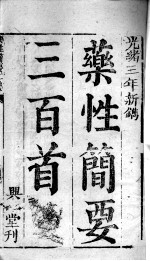 光緒三年新鐫
藥性簡要
三百首
興堂刊